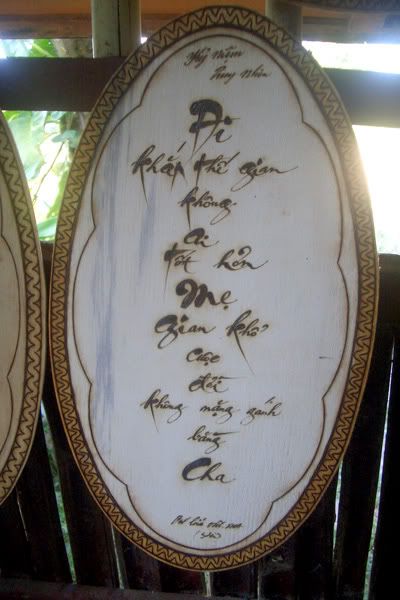 Kỷ niệm
Quy Nhơn
Đi
khắp thế gian
không
ai
tốt hơn
Mẹ
Gian khổ
cuộc
đời
không nặng gánh
bằng
Cha
Bút lửa